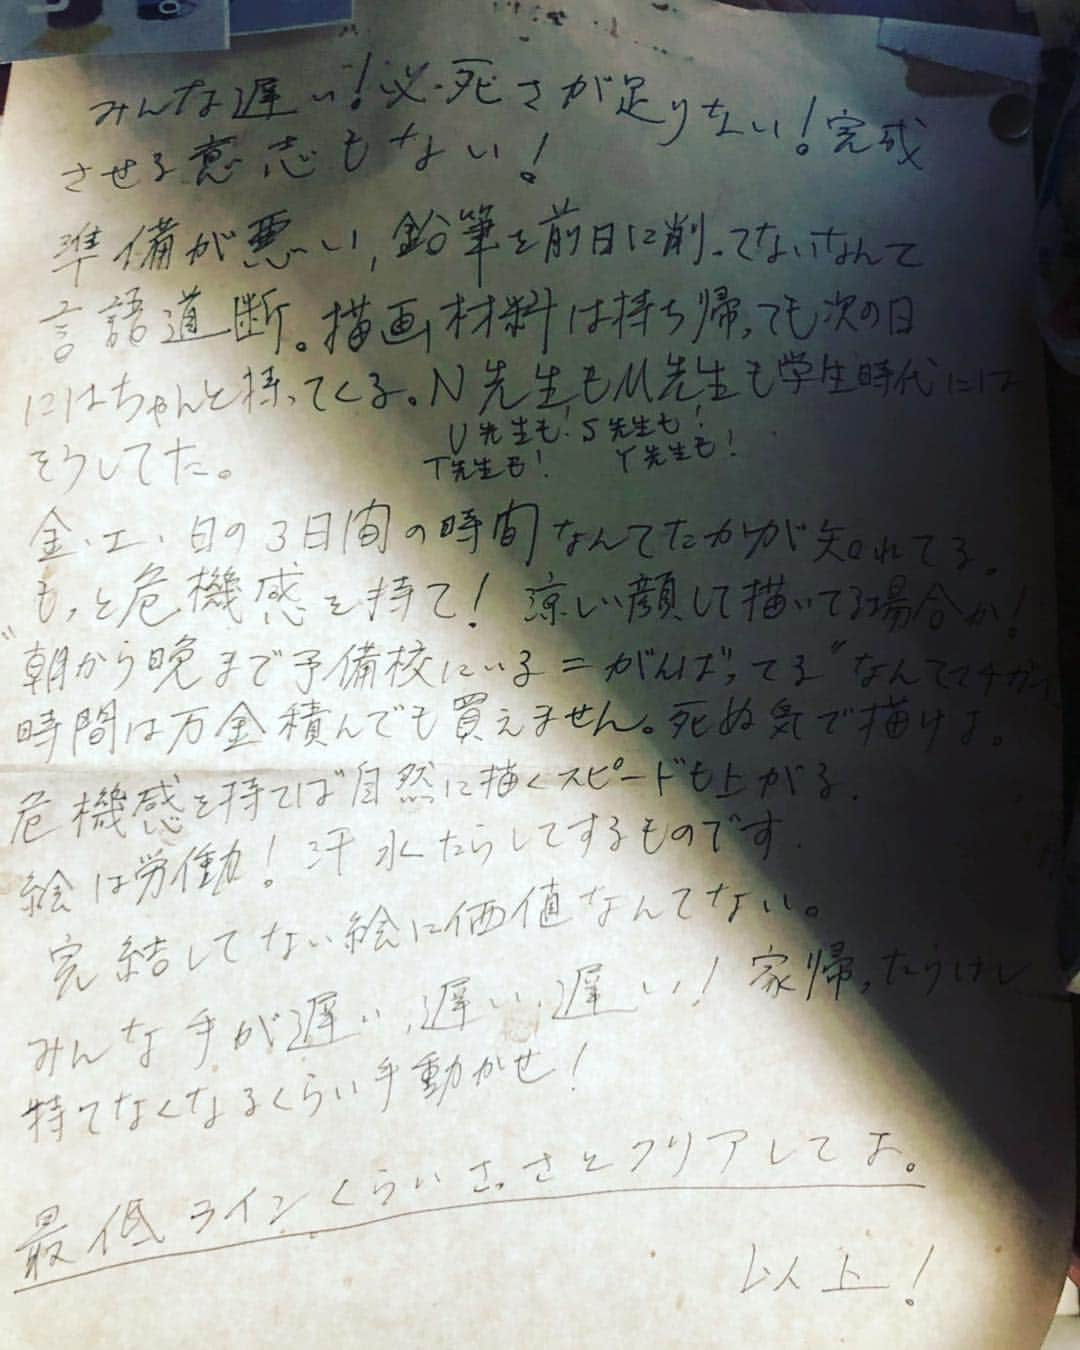 みんな遅い!必死さが足りない!完成
させる意志もない!
準備が悪い,鉛筆を前日に削ってないなんて
言語道断。描画材料は持ち帰っても次の日
にはちゃんと持ってくる。N先生もM先生も学生時代には
U先生も!S先生も!
T先生も! Y先生も!
そうしてた。
金・土・日の3日間の時間なんてたかが知れてる。
もっと危機感を持て!涼しい顔して描いてる場合か!
"朝から晩まで予備校にいる=がんばってる"なんてマチガイ
時間は万金積んでも買えません。死ぬ気で描けよ。
危機感を持てば自然に描くスピードも上がる.
絵は労働!汗水たらしてするものです.
完結してない絵に価値なんてない。
みんな手が遅い,遅い,遅い!家帰ったらはし
持てなくなるくらい手動かせ!
最低ラインくらいさっさとクリアしてよ。
以上!